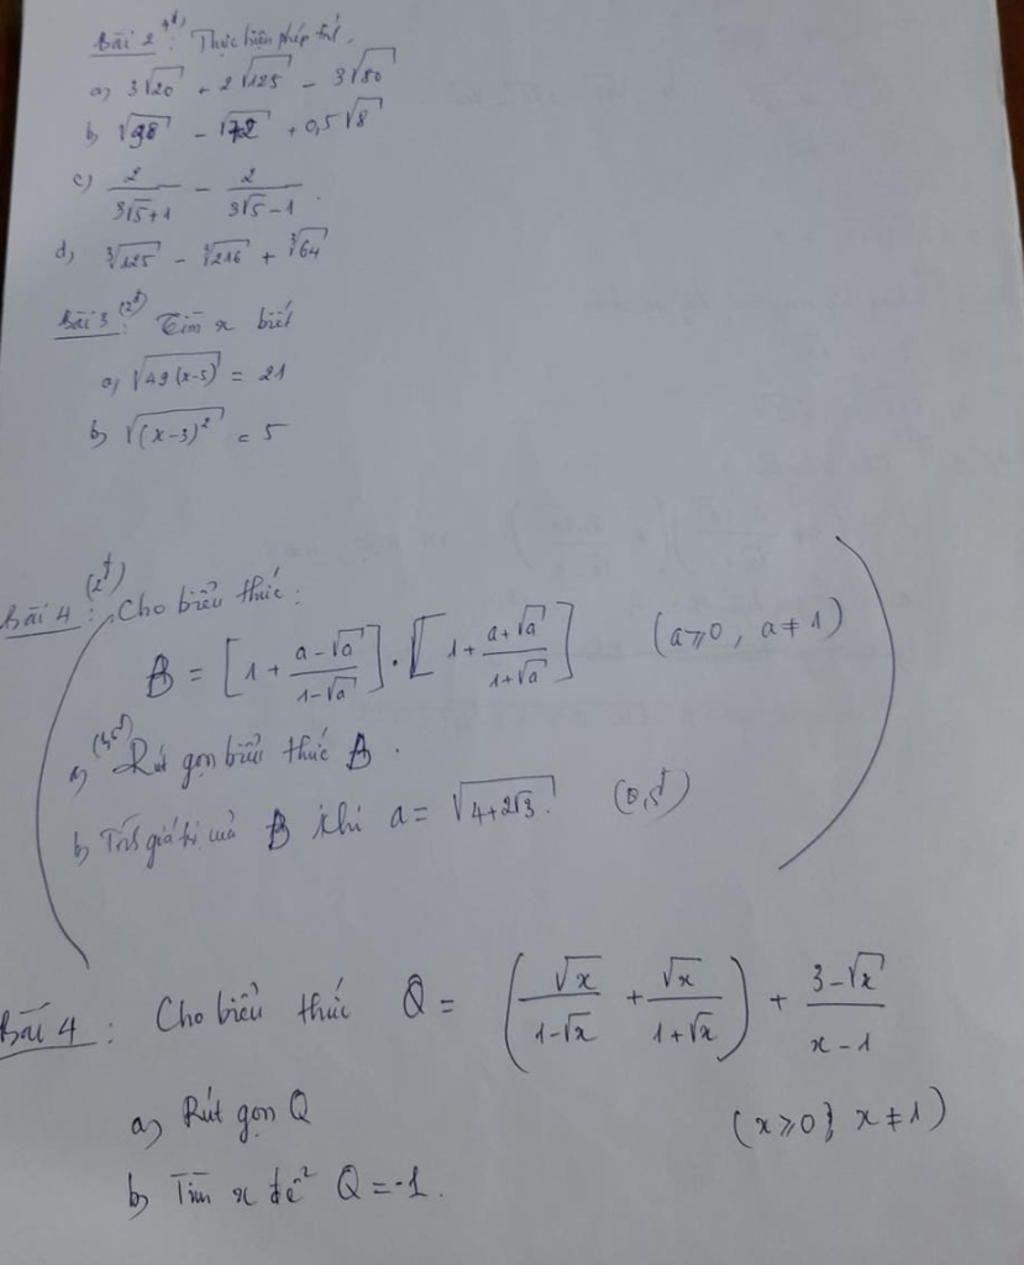 Bài 2 4đ: Thực hiện phép tính.
a) 3√20 + 2√125 - 3√80
b) √98 - √72 + 0,5√8
c) 2/(3√5+1) - 2/(3√5-1).
d) ∛125 - ∛216 + ∛64
Bài 3 (2đ): Tìm x biết
a) √49(x-5) = 21
b) √(x-3)² = 5
Bài 4 (2đ): Cho biểu thức:
B = [1 + (a-√a)/(1-√a)] . [1 + (a+√a)/(1+√a)] (a≥0, a≠1)
a) Rút gọn biểu thức B.
b) Tính giá trị của B khi a = √4+2√3. (0,5đ)
Bài 4: Cho biểu thức Q = (√x/(1-√x) + √x/(1+√x)) + (3-√x)/(x-1)
a) Rút gọn Q (x≥0; x≠1)
b) Tìm x để Q = -1.